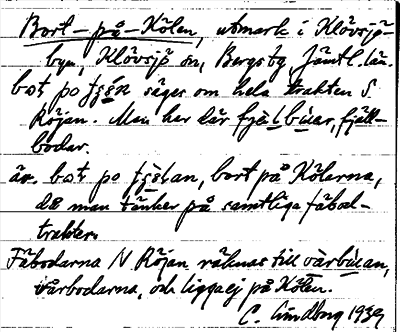 Bort-på-Kölen, utmark i Klövsjö
byn, Klövsjö sn, Bergs tg, Jämtl. län.
bot po säges om hela trakten S.
Röjan. Man har där fjäll-
bodar.
äv. bot po bort på Kölarna,
då man tänker på samtliga fäbod-
trakter.
Fäbodarna N Röjan räknas till vårbúan,
vårbodarna, och ligga ej på Kölen.
C. Lindberg 1939